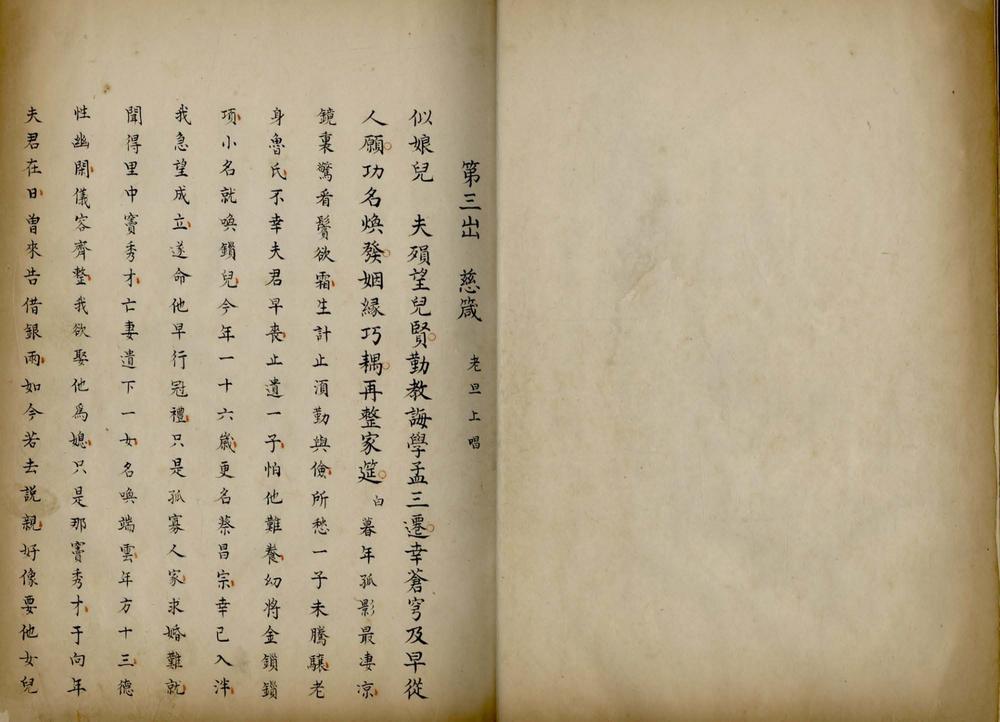 第三出 慈箴 老旦上唱
似娘兒 夫殞望兒賢勤教誨學孟三遷幸蒼穹及早從
人願功名煥發姻緣巧耦再整家筵 白 暮年孤影最凄凉
鏡裏驚看鬢欲霜生計止湏勤與儉所愁一子未騰驤老
身魯氏不幸夫君早喪止遺一子怕他難養幼將金鎖鎖
項小名就喚鎖兒今年一十六歲更名蔡昌宗幸已入泮
我急望成立遂命他早行冠禮只是孤寡人家求婚難就
聞得里中竇秀才亡妻遺下一女名喚端雲年方十三德
性幽閑儀容齊整我欲娶他爲媳只是那竇秀才于向年
夫君在日曾來告借銀兩如今若去説親好像要他女兒